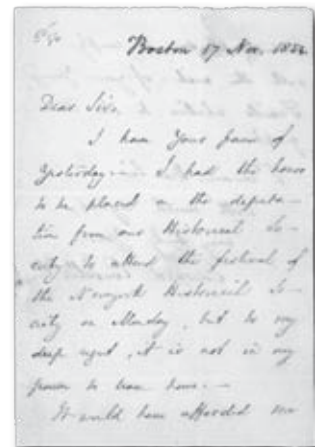 Boston 17 Nov. 185
Dear Sir,
I have your favor of
yesterday — I had the honor
to be placed on the deputa-
tion from our Historical So-
ciety to attend the festival of
the Newyork Historical So-
ciety on Monday, but to my
deep regret, it is not in my
power to leave home. —
It would have afforded me